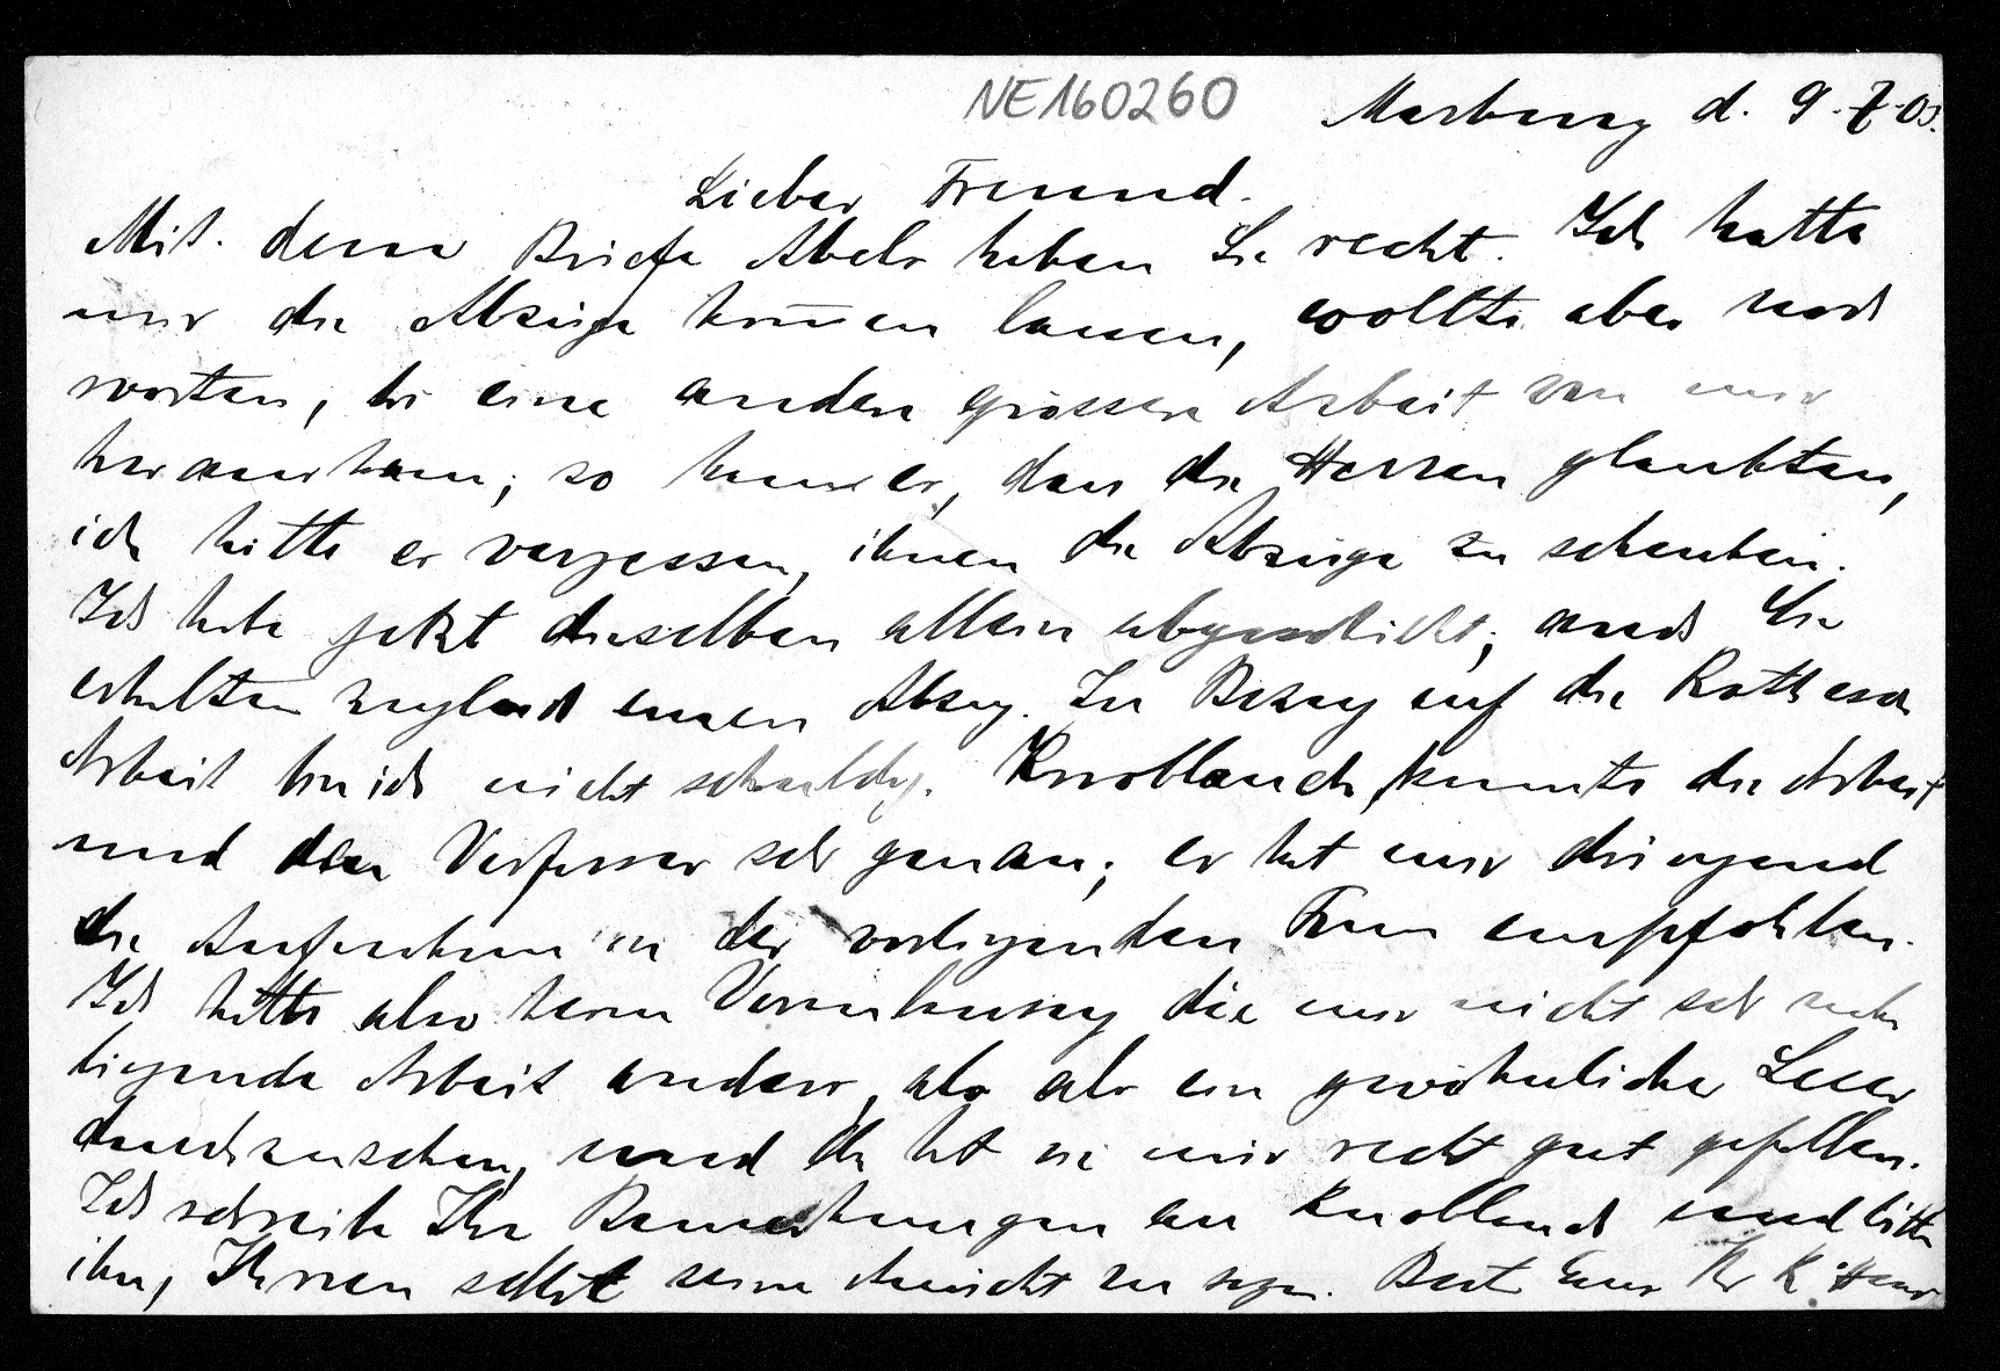 NE160260
Marburg d. 9.7.03.
Lieber Freund.
Mit dem Briefe Abels haben Sie recht. Ich hatte
mir die Abzüge kom̅en lassen, wollte aber noch
warten, bis eine andere grössere Arbeit von mir
herauskam; so kam es, dass die Herren glaubten,
ich hätte es vergessen, ihnen die Abzüge zu schenken.
Ich habe jetzt dieselben allein abgeschickt; auch Sie
erhalten zugleich einen Abzug. In Bezug auf die
Arbeit bin ich nicht schuldig. Knoblauch kannte die Arbeit
und den Verfasser sehr genau; er hat mir dringend
die Aufnahme in der vorliegenden Form empfohlen.
Ich hatte also keine Veranlassung die mir nicht sehr nahe
liegende Arbeit anders, als als ein gewöhnlicher Leser
durchzusehen, und da hat sie mir recht gut gefallen.
Ich schreibe Ihre Bemerkungen an Knoblauch und bitte
ihn, Ihnen selbst seine Ansicht zu sagen. Best Ihr K. Hensel